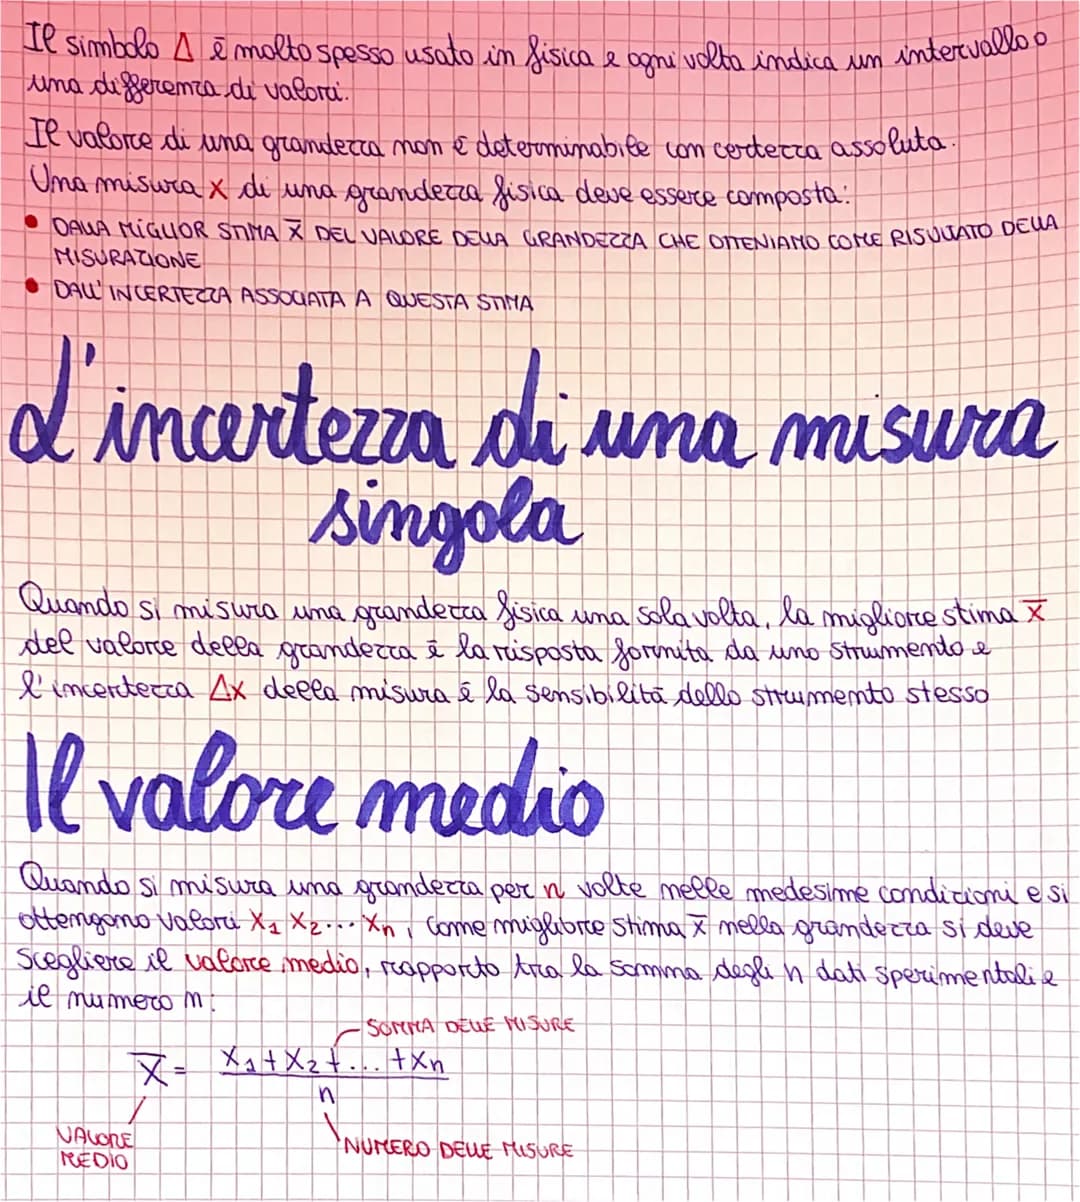 Il simbolo Δ è molto spesso usato in fisica e ogni volta indica un intervallo o
una differenza di valori.
Il valore di una grandezza non è determinabile con certezza assoluta.
Una misura x di una grandezza fisica deve essere composta:
• DALLA MIGLIOR STIMA x̅ DEL VALORE DELLA GRANDEZZA CHE OTTENIAMO COME RISULTATO DELLA
MISURAZIONE
• DALL'INCERTEZZA ASSOCIATA A QUESTA STIMA
L'incertezza di una misura
singola
Quando si misura una grandezza fisica una sola volta, la migliore stima x̅
del valore della grandezza è la risposta fornita da uno strumento e
l'incertezza Δx della misura è la sensibilità dello strumento stesso
Il valore medio
Quando si misura una grandezza per n volte nelle medesime condizioni e si
ottengono valori x₁ x₂... xn, come migliore stima x̅ nella grandezza si deve
scegliere il valore medio, rapporto tra la somma degli n dati sperimentali e
il numero n:
SOMMA DELLE MISURE
x̅ = x₁+x₂+...+xn
n
VALORE
MEDIO
NUMERO DELLE MISURE